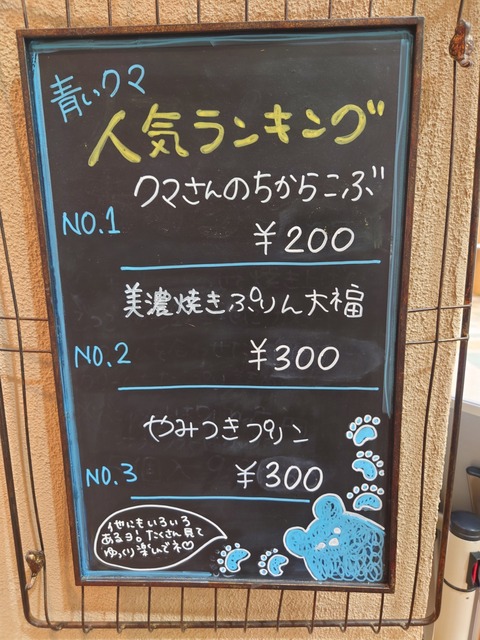 青いクマ
人気ランキング
クマさんのちからこぶ
NO.1
¥200
美濃焼きぷりん大福
NO.2
¥300
やみつきプリン
NO.3
¥300
他にもいろいろ
あるヨ!。たくさん見て
ゆっくり楽しんでネ♡